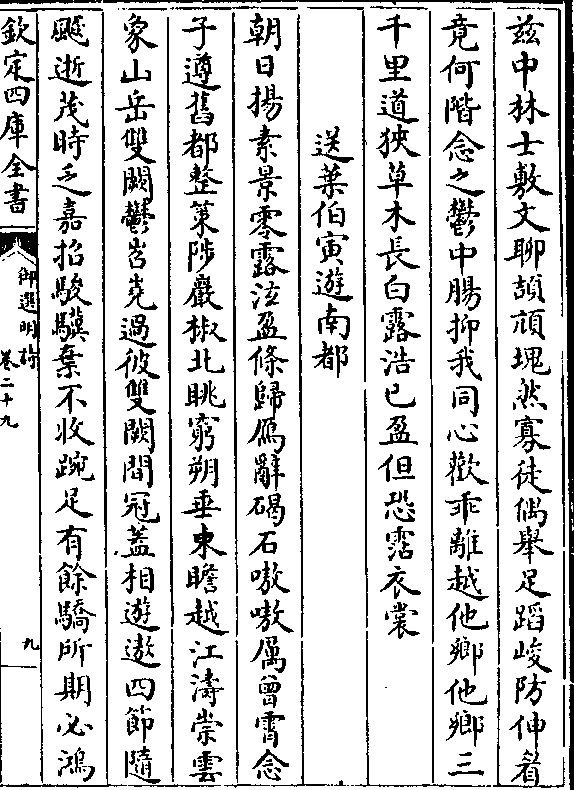 茲中林士敷文聊頡頏塊然寡徒偶舉足蹈峻防伸眷
竟何階念之鬱中腸抑我同心歡乖離越他鄉他鄉三
千里道狹草木長白露浩已盈但恐霑衣裳
送葉伯寅遊南都
朝日揚素景零露泫盈條歸鴈辭碣石嗷嗷厲曾霄念
子遵舊都整策陟巖椒北眺窮朔垂東瞻越江濤崇雲
象山岳雙闕鬱岧嶤過彼雙闕間冠蓋相遊遨四節隨
飈逝茂時乏嘉招駿驥棄不收踠足有餘驕所期必鴻
欽定四庫全書
御選明詩
卷二十九
九